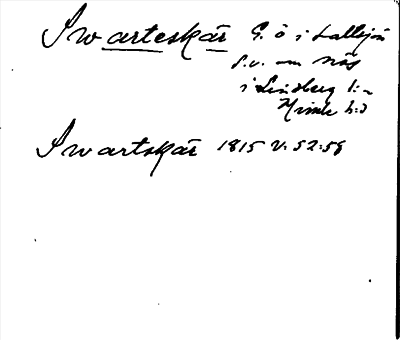 Swarteskär G. ö i Lallsjön
s.v. om Näs
i Lindberg l:n
h:d
Swartskär 1815 V: 52:58